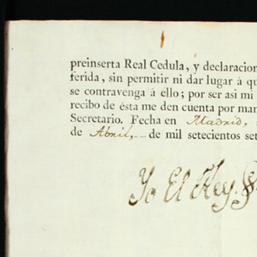 preinserta Real Cedula, y declaracion
ferida, sin permitir ni dar lugar á qu
se contravenga á ello; por ser asi mi
recibo de ésta me den cuenta por man
Secretario. Fecha en Madrid,
de Abril, de mil setecientos set
Yo El Rey.